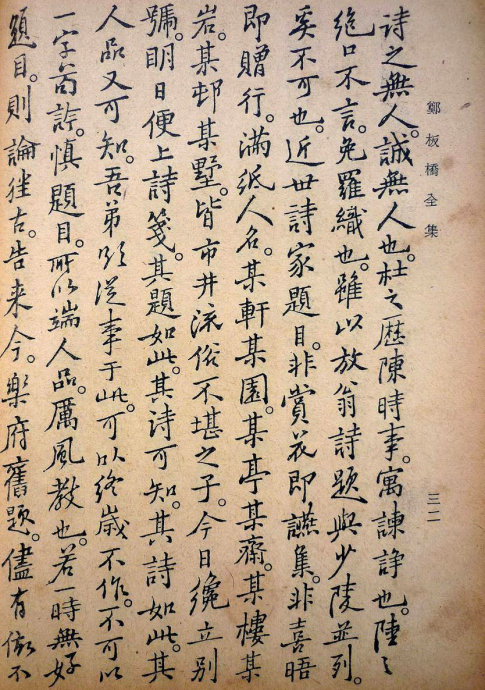 鄭板橋全集
三二
詩之無人。誠無人也。杜之歷陳時事。寓諫諍也。陸之
絕口不言。免羅織也。雖以放翁詩題與少陵並列。
奚不可也。近世詩家題目。非賞花即讌集。非喜晤
即贈行。滿紙人名。某軒某園。某亭某齋。某樓某
岩。某邨某墅。皆市井流俗不堪之子。今日纔立別
號。明日便上詩箋。其題如此。其詩可知。其詩如此。其
人品又可知。吾弟欲從事于此。可以終歲不作。不可以
一字苟訡。慎題目。所以端人品。厲風教也。若一時無好
題目。則論往古。告来今。樂府舊題。儘有做不